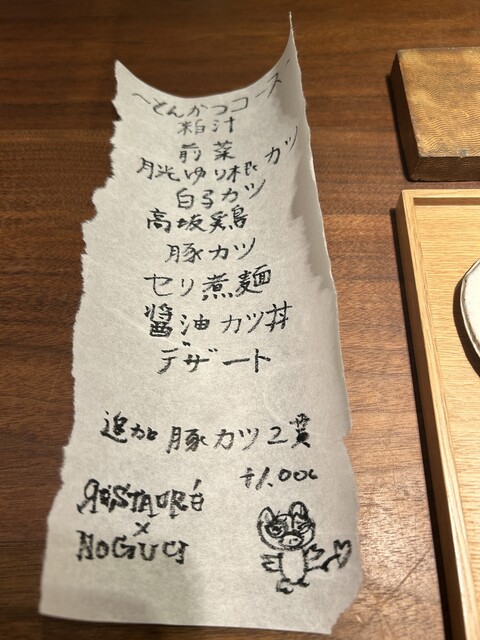 ～とんかつコース～
粕汁
前菜
月光ゆり根カツ
白子カツ
高坂鶏
豚カツ
セリ煮麺
醤油カツ丼
デザート
追加 豚カツ2貫
¥1,000
RESTAURÉ
×
NOGUCI